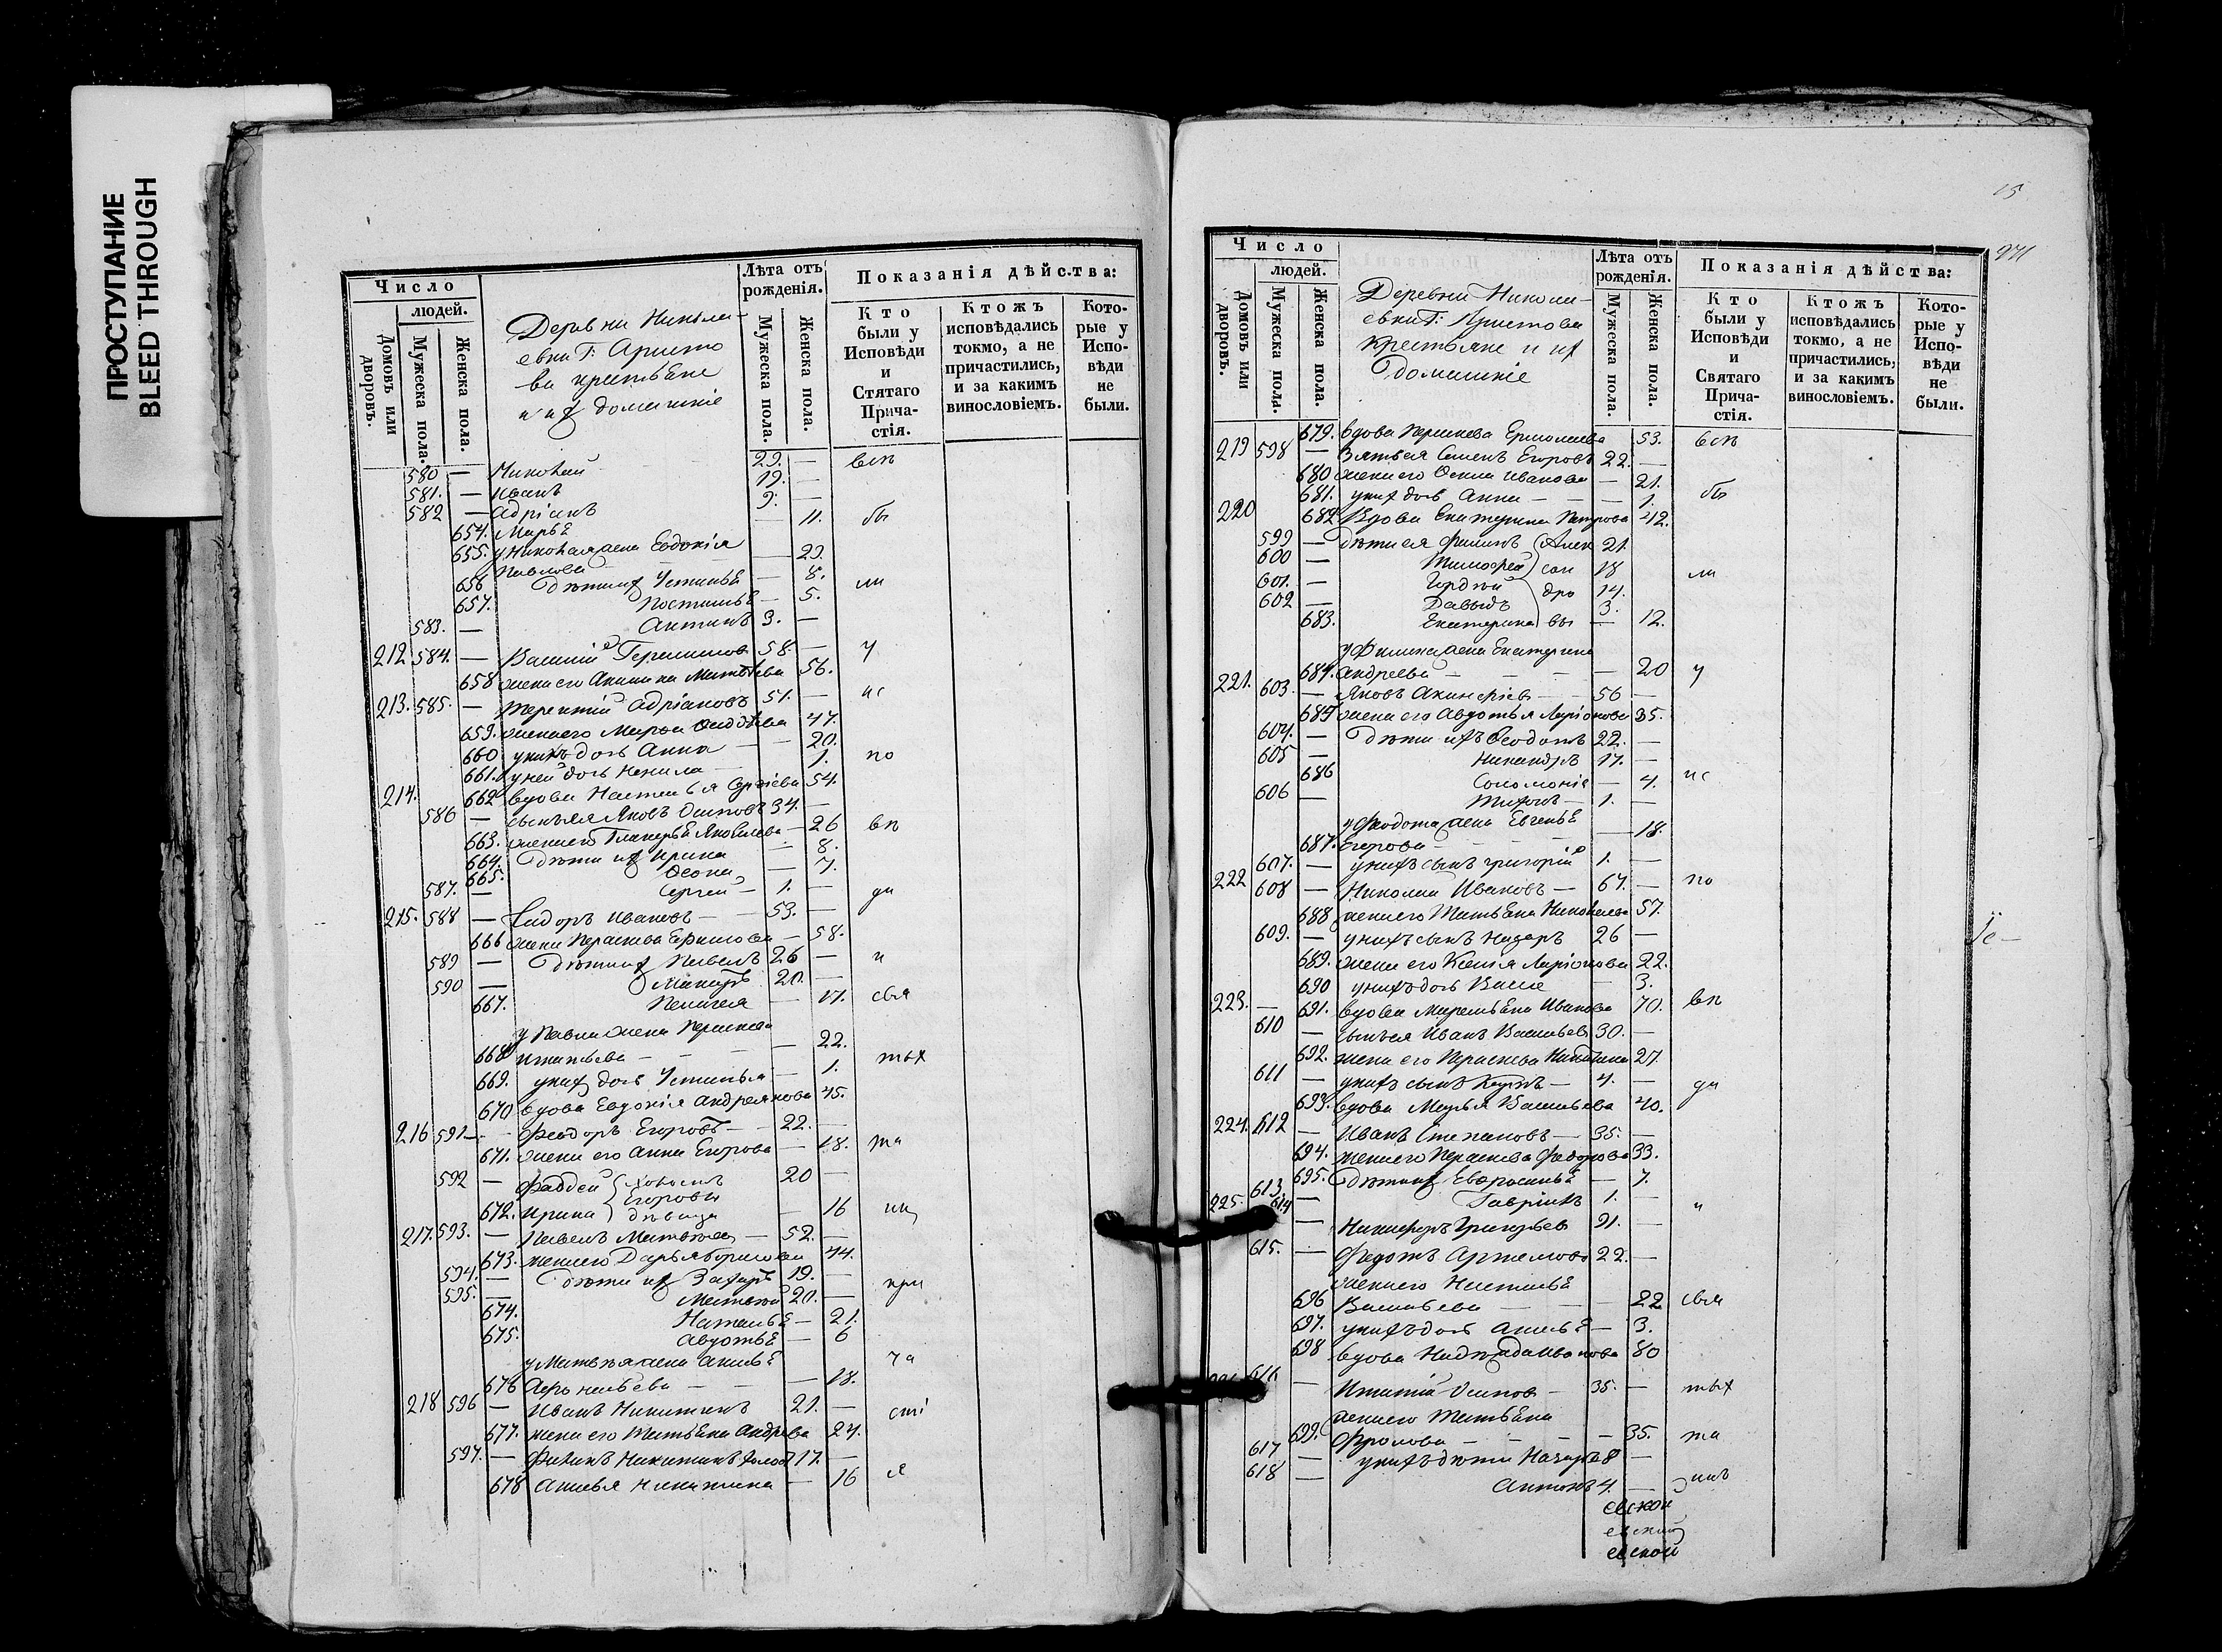 ПРОСТУПАНИЕ
BLEED THROUGH
Число
людей.
Домовъ или дворовъ.
Мужеска пола.
Женска пола.
Деревни Никола-
евки Г: Аристо
ва крестьяне
и ихъ домашніе
Лѣта отъ рожденія.
Мужеска пола.
Женска пола.
Показанія дѣйства:
Кто были у Исповѣди и Стятаго Прича- стія.
Ктожъ исповѣдались токмо, а не причастились, и за какимъ винословіемъ.
Кото- рые у Испо- вѣди не были.
580 — Николай 29. — всѣ
581. — Иванъ 19. —
582 — Адріанъ 9. —
654. Марья — 11. бы
655. у Николая жена Евдокія
Павлова — 29.
656 Дѣти ихъ Устинья — 8. ли
657. — 5.
583. — Антипъ 3. —
212 584. — Василій Герасимов 58. — у
658 жена его Акилина Матвѣева 56.
213. 585. — Терентій Адріановъ 51. — ис
659. жена его Марья 47.
660 у нихъ дочь Анна — 20.
661. у ней дочь Ненила — 1. по
214. 662 вдова Настасья Сергіева 54.
586 — сынъ ея Яковъ Осиповъ 34. —
663. жена его Гликерья Яковлева — 26 вѣ
664. Дѣти ихъ Ирина — 8.
665. — 7.
587. — Сергей — 1. — ди
215. 588 — Сидоръ Ивановъ — 53. —
666 жена Параскева Ефимова — 58.
589 — Дѣти ихъ Павелъ 26 — и
590 — Макаръ 20. —
667. Пелагея — 17. свя
у Павла жена Параскева
668 Игнатьева — — 22.
669. у нихъ дочь Устинья — 1. тых
670 вдова Евдокія Андреянова 45.
216 591 — Феодоръ Егоровъ — 22. —
671. жена его Анна Егорова — 18. та
592 — Фаддей холостъ 20 —
Егоровы
672. Ирина дѣвица — 16 ин
217. 593. — Павелъ Матвѣев — 52. —
673. жена его Дарья Борисова 44.
594. — Дѣти ихъ Захаръ 19. — при
595. — Матвей 20. —
674. Наталья — 21.
675. Авдотья — 6
у Матвѣя жена Анисья ча
676 — 18.
218 596 — Иванъ Никитинъ 21. — сті
677. жена его Татьяна Андрева 24.
597. — Филипъ Никитинъ холост 17. —
678 Анисья Никитина — 16 я
15
971
Число
людей.
Домовъ или дворовъ.
Мужеска пола.
Женска пола.
Деревни Никола-
евки Г: Аристова
крестьяне и их
домашніе
Лѣта отъ рожденія.
Мужеска пола.
Женска пола.
Показанія дѣйства:
Кто были у Исповѣди и Святаго Прича- стія.
Ктожъ исповѣдались токмо, а не причастились, и за какимъ винословіемъ.
Кото- рые у Испо- вѣди не были.
679. вдова Параскева Ермолаева 53. всѣ
219 598 — Зять ея Семенъ Егоровъ 22. —
680 жена его Ивановна — 21.
681. у них дочь Анна — — — 1. бы
220 682 Вдова Екатерина Петрова 42.
599 — Дѣти ея Филипъ Алек 21.
600 — Тимофей сан 18 ли
601. — Гордѣй дро 14.
602 — Давыдъ 3.
683. Екатерина вы — 12.
у Филипа жена Екатерина
684. Андреева — — — 20 у
221. 603. — Яковъ — 56 —
685 жена его Авдотья Ларіонова 35.
604. — Дѣти ихъ Феодотъ 22. —
605 — Никандръ 17. —
686 Соломонія — 4. ис
606 — Тихонъ — 1. —
у Феодота жена Евгенья
687. Егорова — — — 18.
607. — у нихъ сынъ Григорій 1. —
222 608 — Николай Ивановъ — 67. — по
688 жена его Татьяна Николаева 57.
609. — у нихъ сынъ Назаръ 26 —
689. жена его Ксенія Ларіонова 22.
690 у нихъ дочь Васса — 3.
223. — 691. вдова Маремьяна Иванова 70. вѣ
610 — сынъ ея Иванъ Васильевъ 30. —
692. жена его Параскева Никитина 27.
611 — у нихъ сынъ Карпъ — 4. — ди
693. вдова Марья Васильева 40.
224. 612 — Иванъ Степановъ — 35. —
694. жена его Параскева Федорова 33.
695. Дѣти ихъ Евфросинья — 7.
613 — Гавріилъ 1. — и
225. 614 — Никифоръ Григорьев 91. —
615. — Федотъ Артемовъ 22. —
жена его Настасья
696 Васильева — — 22 свя
697. у нихъ дочь Анисья — 3.
698 вдова Надежда Иванова 80
616 — Игнатій Осипов — 35. — тых
жена его Татьяна
699. Фролова — — — 35. та
617 — у нихъ дѣти Назаръ 8 —
618 — Антонъ 4. — инъ
евской
евскій
евской